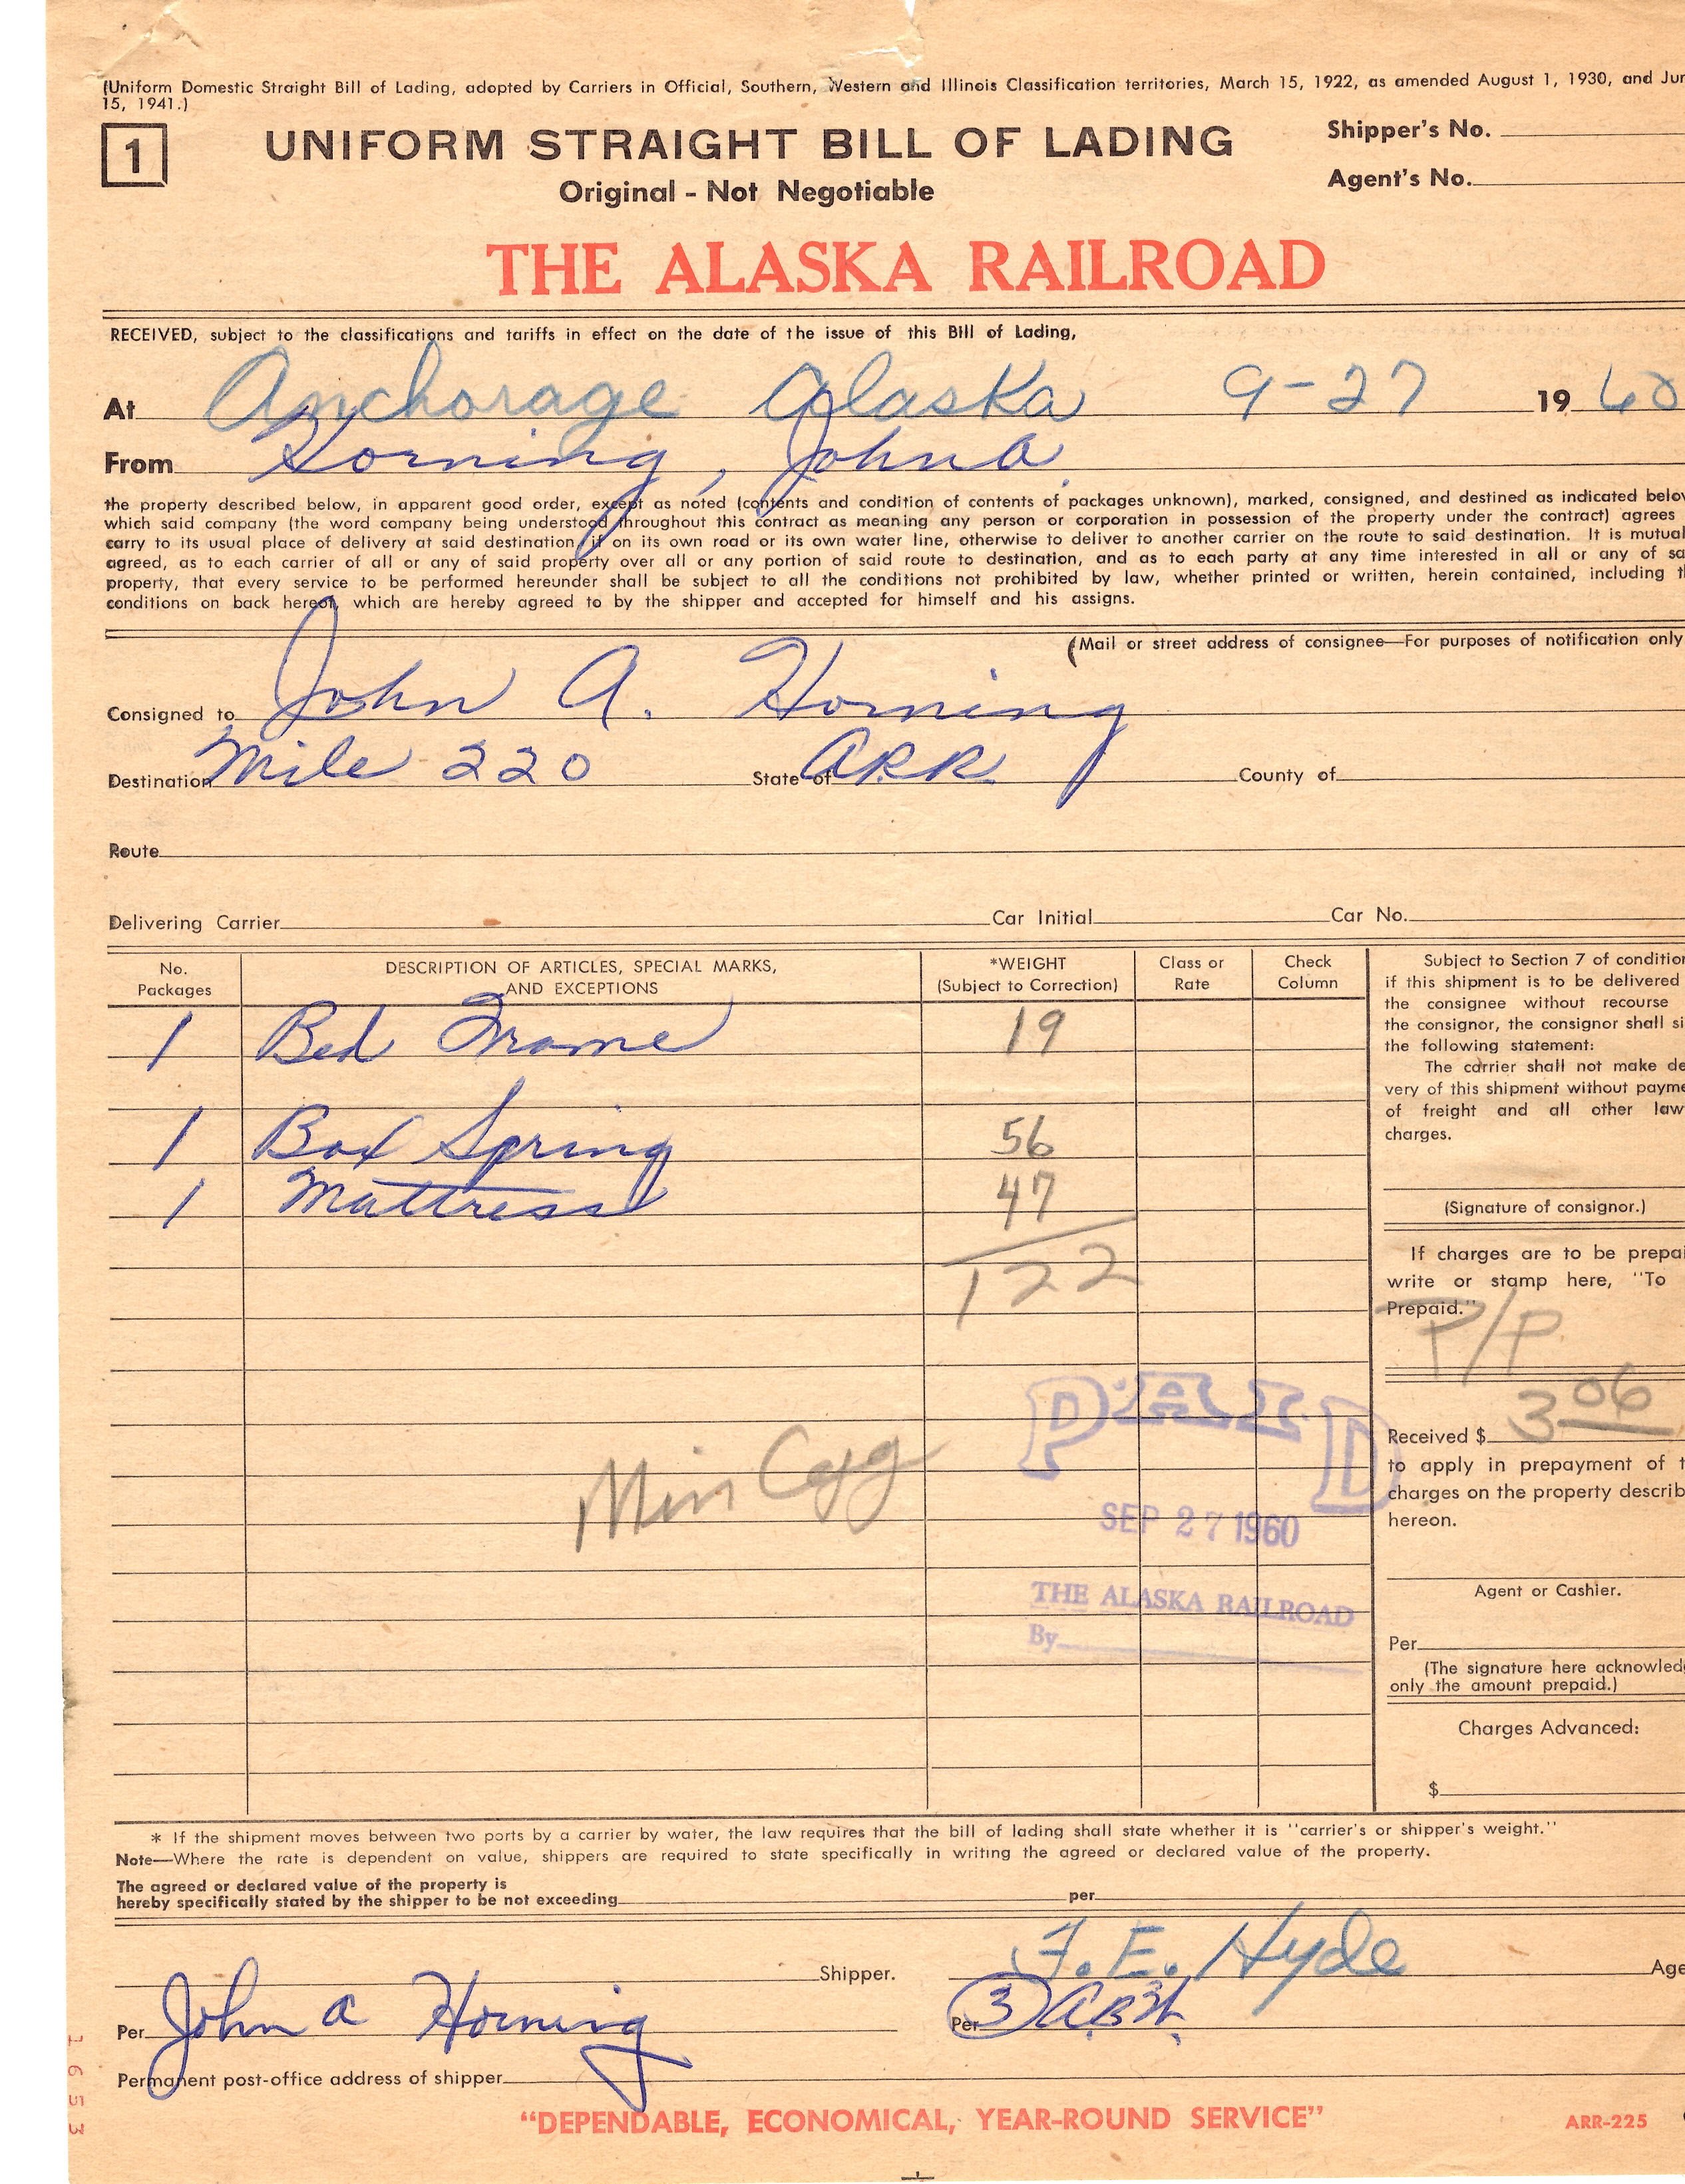 (Uniform Domestic Straight Bill of Lading, adopted by Carriers in Official, Southern, Western and Illinois Classification territories, March 15, 1922, as amended August 1, 1930, and
15, 1941.)
1
UNIFORM STRAIGHT BILL OF LADING
Original - Not Negotiable
Shipper's No.
Agent's No.
THE ALASKA RAILROAD
RECEIVED, subject to the classifications and tariffs in effect on the date of the issue of this Bill of Lading,
At Anchorage Alaska 9-27 1960
From Horning, John A
the property described below, in apparent good order, except as noted (contents and condition of contents of packages unknown), marked, consigned, and destined as indicated
which said company (the word company being understood throughout this contract as meaning any person or corporation in possession of the property under the contract) agrees
carry to its usual place of delivery at said destination, if on its own road or its own water line, otherwise to deliver to another carrier on the route to said destination. It is
agreed, as to each carrier of all or any of said property over all or any portion of said route to destination, and as to each party at any time interested in all or any of
property, that every service to be performed hereunder shall be subject to all the conditions not prohibited by law, whether printed or written, herein contained, including
conditions on back hereon, which are hereby agreed to by the shipper and accepted for himself and his assigns.
(Mail or street address of consignee—For purposes of notification only
Consigned to John A. Horning
Destination Mile 220 State of ARR County of
Route
Delivering Carrier Car Initial Car No.
No. Packages DESCRIPTION OF ARTICLES, SPECIAL MARKS, AND EXCEPTIONS *WEIGHT (Subject to Correction) Class or Rate Check Column
1 Bed Frame 19
1 Box Spring 56
1 Mattress 47
122
Min Chg
PAID
SEP 27 1960
THE ALASKA RAILROAD
By
Subject to Section 7 of
if this shipment is to be delivered
the consignee without recourse
the consignor, the consignor shall
the following statement:
The carrier shall not make
very of this shipment without
of freight and all other
charges.
(Signature of consignor.)
If charges are to be
write or stamp here, "To
Prepaid."
P/P
Received $ 3 06
to apply in prepayment of
charges on the property
hereon.
Agent or Cashier.
Per
(The signature here
only the amount prepaid.)
Charges Advanced:
$
* If the shipment moves between two ports by a carrier by water, the law requires that the bill of lading shall state whether it is "carrier's or shipper's weight."
Note—Where the rate is dependent on value, shippers are required to state specifically in writing the agreed or declared value of the property.
The agreed or declared value of the property is
hereby specifically stated by the shipper to be not exceeding per
Shipper. F. E. Hyde
Per John A Horning Per 3
Permanent post-office address of shipper
1653
"DEPENDABLE, ECONOMICAL, YEAR-ROUND SERVICE"
ARR-225